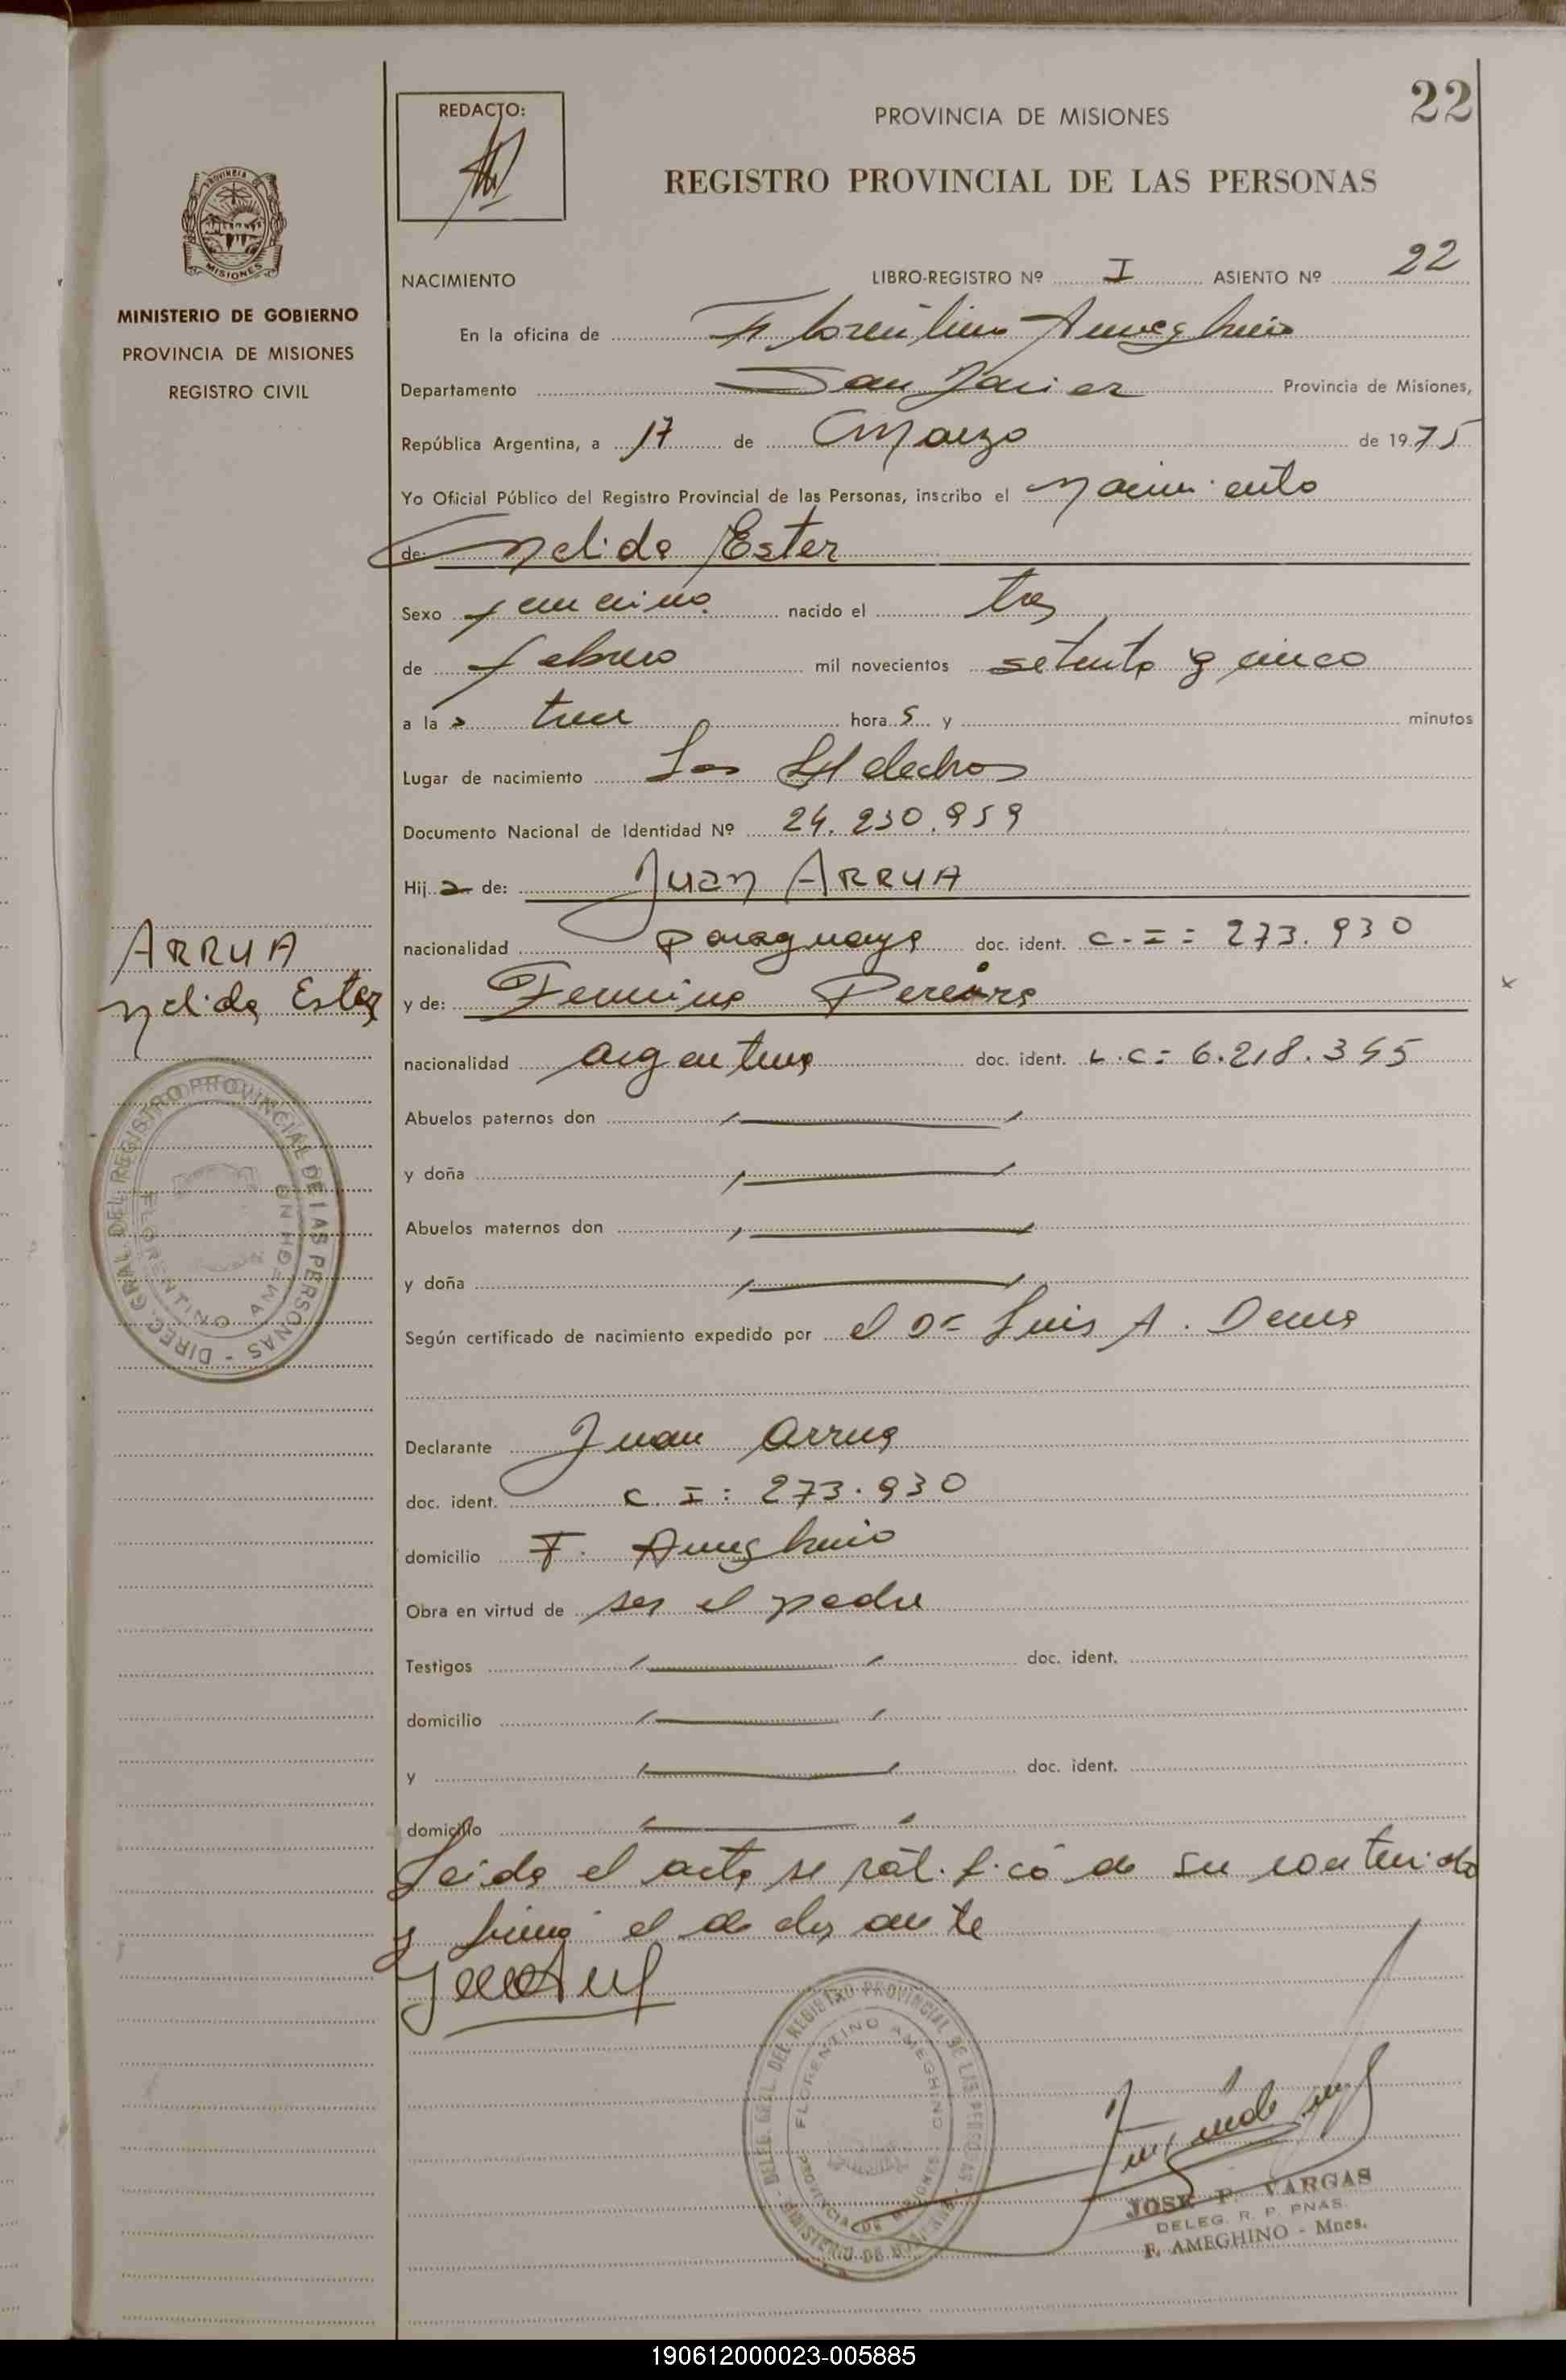 22
REDACTO:
PROVINCIA DE MISIONES
REGISTRO PROVINCIAL DE LAS PERSONAS
PROVINCIA DE
MISIONES
MINISTERIO DE GOBIERNO
PROVINCIA DE MISIONES
REGISTRO CIVIL
NACIMIENTO LIBRO-REGISTRO Nº I ASIENTO Nº 22
En la oficina de Florentino Ameghino
Departamento San Javier Provincia de Misiones,
República Argentina, a 17 de Marzo de 1975
Yo Oficial Público del Registro Provincial de las Personas, inscribo el Nacimiento
de: Nelida Ester
Sexo femenino nacido el tres
de febrero mil novecientos setenta y cinco
a las trece horas y minutos
Lugar de nacimiento Los Helechos
Documento Nacional de Identidad Nº 24.230.959
Hija de: Juan ARRUA
nacionalidad paraguaya doc. ident. C.I: 273.930
ARRUA
Nelida Ester
y de: Fermina Pereira
nacionalidad argentina doc. ident. L.C: 6.218.345
Abuelos paternos don
y doña
Abuelos maternos don
y doña
Según certificado de nacimiento expedido por el Dr Luis A.
DIREC. GRAL. DEL REGISTRO PROVINCIAL DE LAS PERSONAS
FLORENTINO AMEGHINO
Declarante Juan Arrua
doc. ident. C.I: 273.930
domicilio F. Ameghino
Obra en virtud de ser el padre
Testigos doc. ident.
domicilio
y doc. ident.
domicilio
Leida el acta se ratificó de su contenido
y firmó el declarante
DELEG. GRAL. DEL REGISTRO PROVINCIAL DE LAS PERSONAS
FLORENTINO AMEGHINO
PROVINCIA DE MISIONES
JOSE F. VARGAS
DELEG. R. P. PNAS.
F. AMEGHINO - Mnes.
190612000023-005885